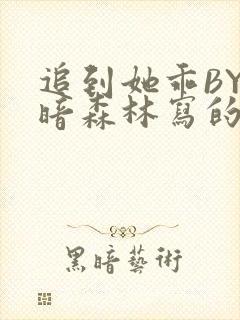 追到她乖BY
暗森林寫的
黑暗藝術